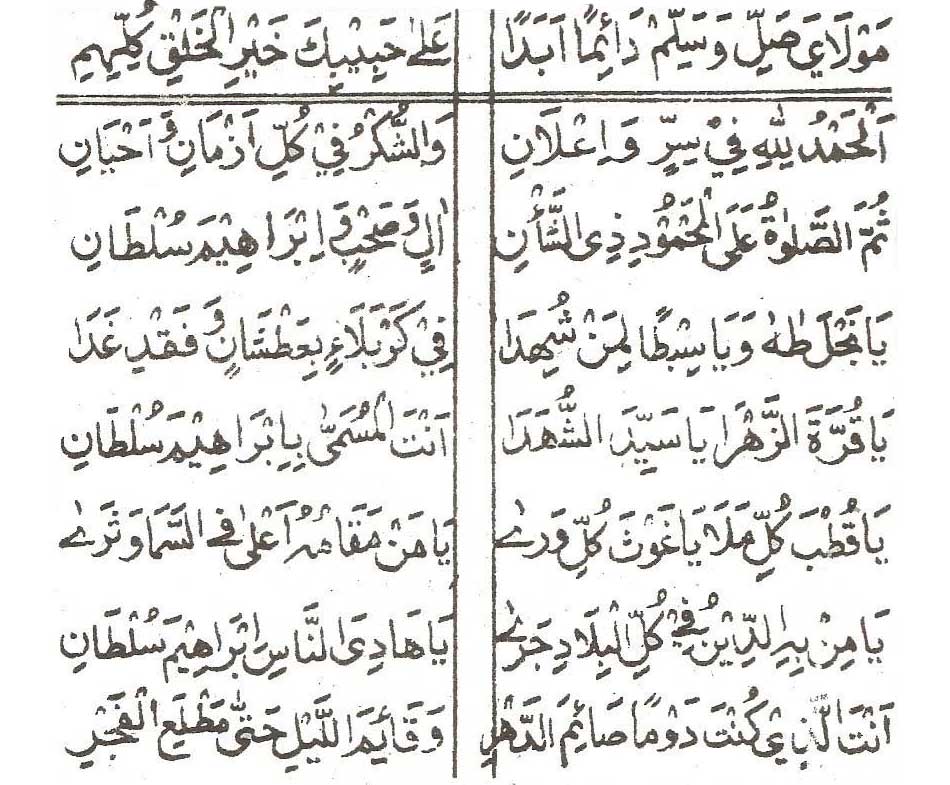 مَوْلَايَ صَلِّ وَسَلِّمْ دَائِمًا اَبَدًا عَلٰى حَبِيْبِكَ خَيْرِ الْخَلْقِ كُلِّهِمِ
اَلْحَمْدُ لِلّٰهِ فِيْ سِرٍّ وَاِعْلَانِ وَالشُّكْرُ فِيْ كُلِّ اَزْمَانٍ وَّاَحْيَانِ
ثُمَّ الصَّلٰوةُ عَلَى الْمَحْمُوْدِ ذِى الشَّأْنِ اٰلٍ وَّصَحْبٍ وَّاِبْرَاهِيْمَ سُلْطَانِ
يَا نَجْلَ طٰهٰ وَيَا سِبْطًا لِمَنْ شُهِدَا فِيْ كَرْبَلَاءٍ بِعَطْشَانٍ وَّفَقْدِ غَدَا
يَا قُرَّةَ الزَّهْرَا يَا سَيِّدَ الشُّهَدَا اَنْتَ الْمُسَمّٰى بِاِبْرَاهِيْمَ سُلْطَانِ
يَا قُطْبَ كُلِّ مَلَا يَا غَوْثَ كُلِّ وَرٰے يَا مَنْ مَقَامُهُ اَعْلٰى فِے السَّمَا وَثَرٰے
يَا مَنْ بِهِ الدِّيْنُ فِيْ كُلِّ الْبِلَادِ جَرٰے يَا هَادِىَ النَّاسِ اِبْرَاهِيْمَ سُلْطَانِ
اَنْتَ الَّذِيْ كُنْتَ دَوْمًا صَائِمَ الدَّهْرِ وَقَائِمَ اللَّيْلِ حَتّٰى مَطْلَعِ الْفَجْرِ